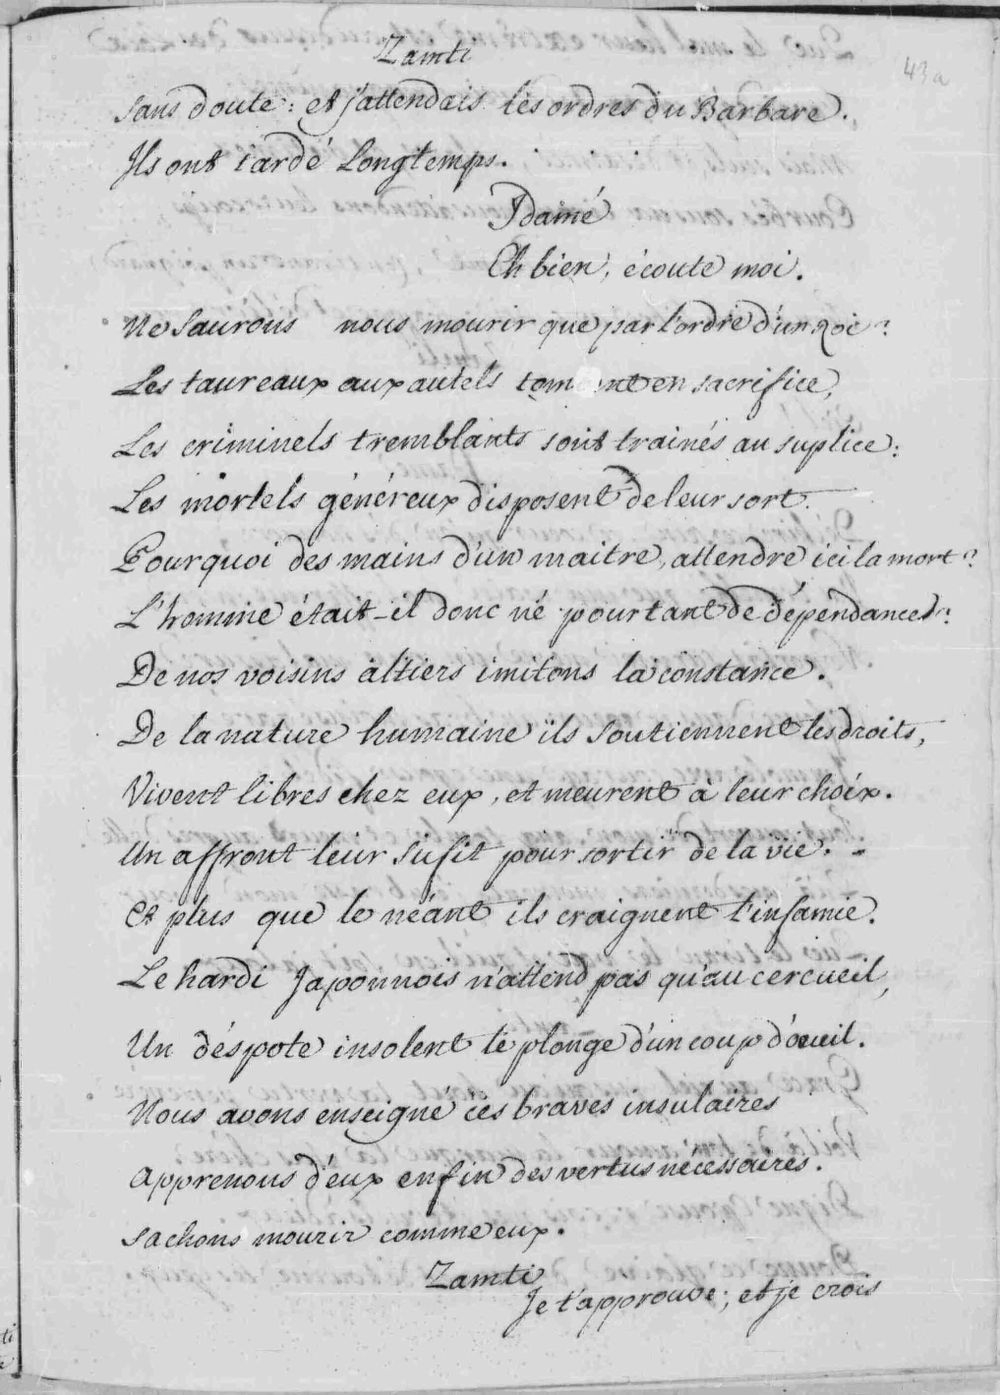 43a
Zamti
Sans doute : et j'attendais les ordres du Barbare.
Ils ont tardé Longtemps.
Idamé
Eh bien, écoute moi.
Ne Saurons nous mourir que par l'ordre d'un Roi ?
Les taureaux aux autels tombent en sacrifice,
Les criminels tremblants sont trainés au suplice :
Les mortels généreux disposent de leur sort.
Pourquoi des mains d'un maitre, attendre ici la mort ?
L'homme était-il donc né pour tant de dépendance ?
De nos voisins altiers imitons la constance.
De la nature humaine ils soutiennent les droits,
Vivent libres chez eux, et meurent à leur choix.
Un affront leur sufit pour sortir de la vie. -
Et plus que le néant ils craignent l'infamie.
Le hardi Japonnois n'attend pas qu'au cercueil,
Un déspote insolent le plonge d'un coup d'oeuil.
Nous avons enseigné ces braves insulaires
apprenons d'eux enfin des vertus nécessaires.
Sachons mourir comme eux.
Zamti
Je t'approuve ; et je crois